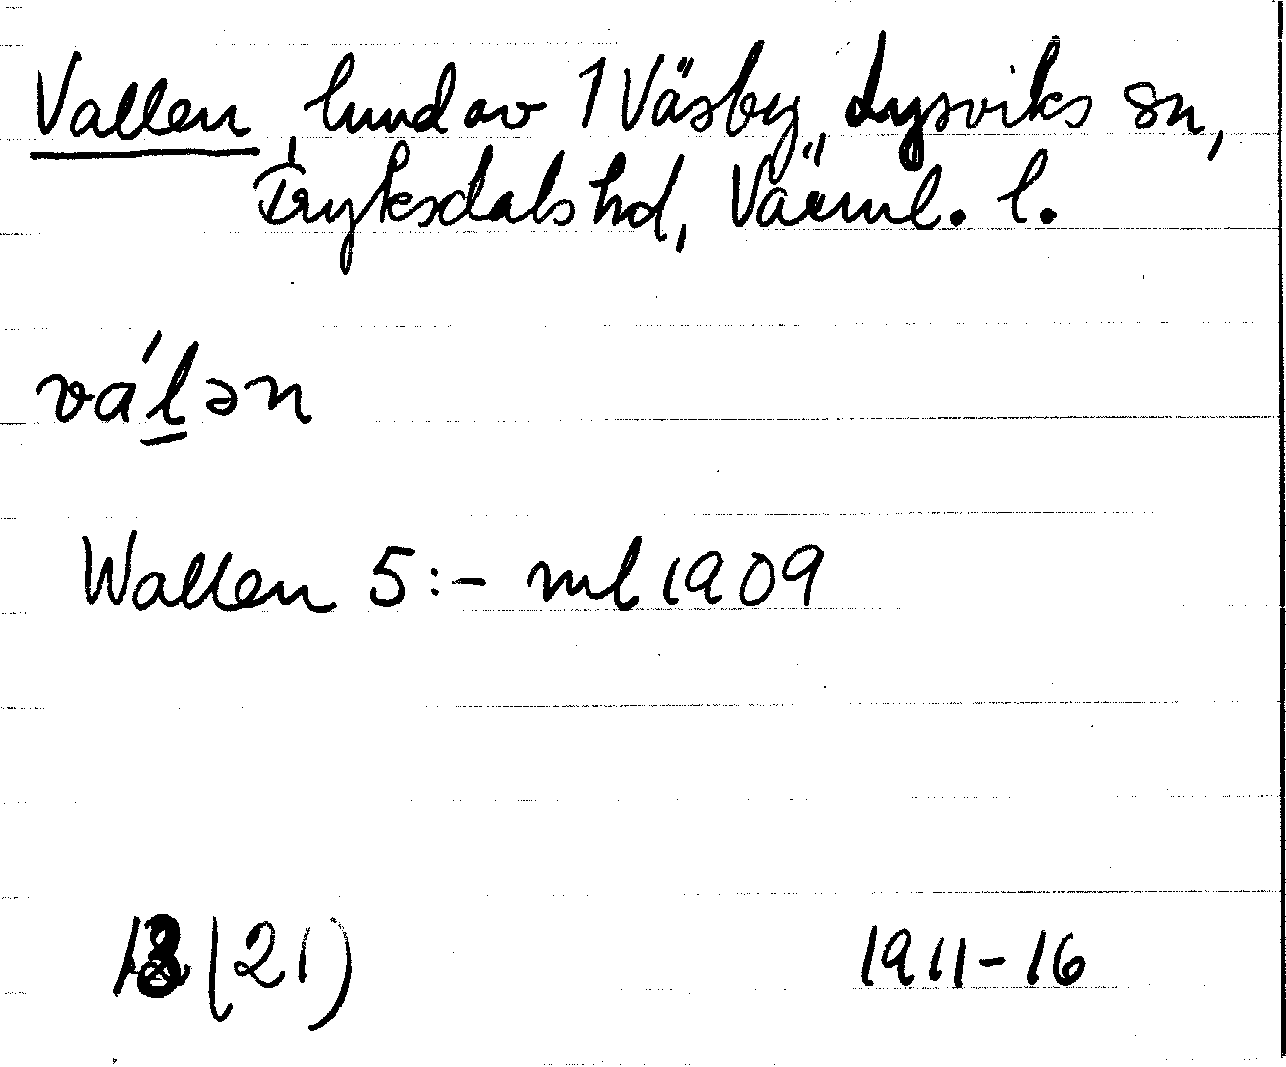 Vallen, lund av 1 Väsby, Lysviks sn,
Fryksdals hd, Värml. l.
vá̱lən
Wallen 5:- ml 1909
(21)
1911-16